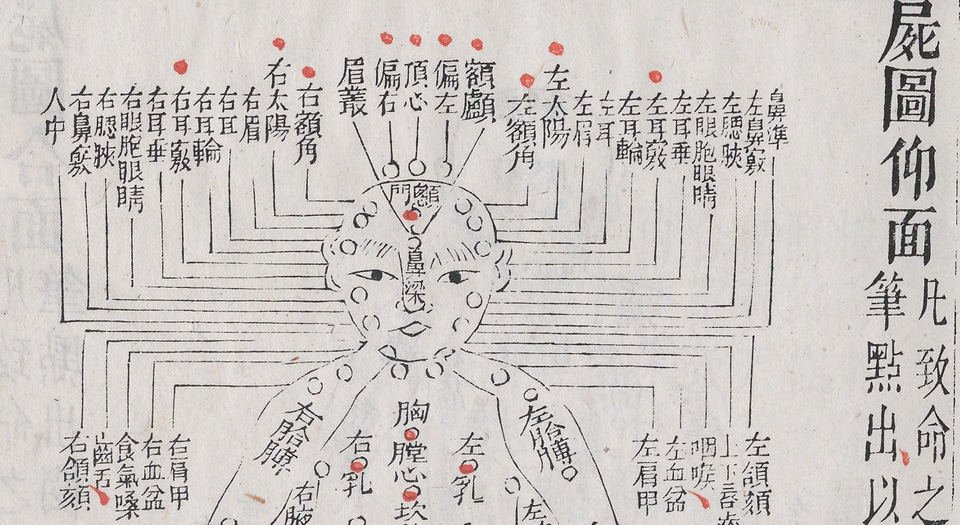 屍圖仰面
凡致命之
筆點出以
鼻準
左鼻竅
左腮脥
左眼胞眼睛
左耳垂
左耳竅
左耳輪
左耳
左眉
左太陽
左額角
額顱
偏左
頂心
偏右
眉叢
右額角
右太陽
右眉
右耳
右耳輪
右耳竅
右耳垂
右眼胞眼睛
右腮脥
右鼻竅
人中
顖門
鼻梁
左頷頦
上下唇
咽喉
左血盆
左肩甲
左胳膊
左乳
左
胸膛
心坎
右乳
右胳膊
右腋
右肩甲
右血盆
食氣嗓
齒舌
右頷頦